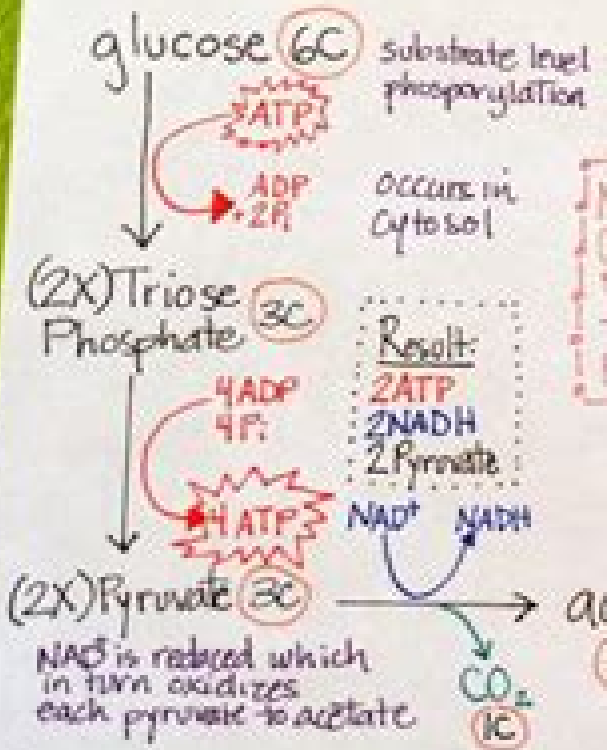 glucose 6C
substrate level
phosporylation
ATP
ADP
+2Pi
occurs in
cytosol
(2X) Triose
Phosphate 3C
Result:
2ATP
2NADH
2 Pyruvate
4ADP
4Pi
4 ATP
NAD+ NADH
(2X) Pyruvate 3C
NAD+ is reduced which
in turn oxidizes
each pyruvate to acetate
CO2
1C